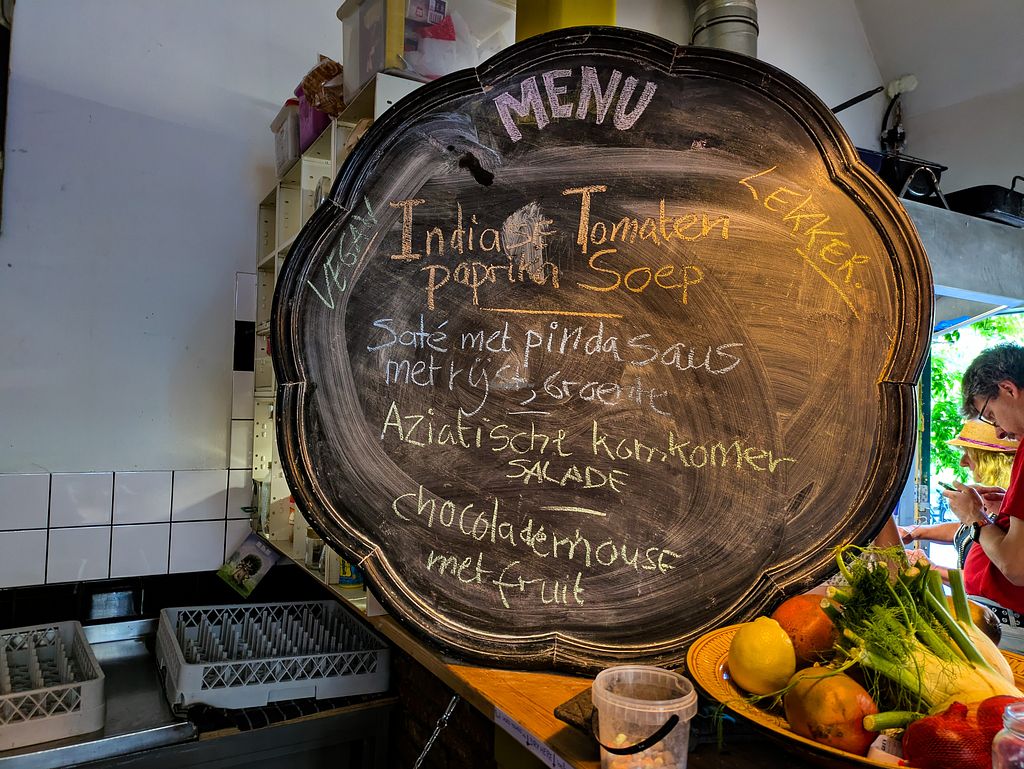 MENU
VEGAN
LEKKER.
Indiase Tomaten
paprika Soep
Saté met pindasaus
met rijst, Groente
Aziatische komkomer
SALADE
chocolademousse
met fruit